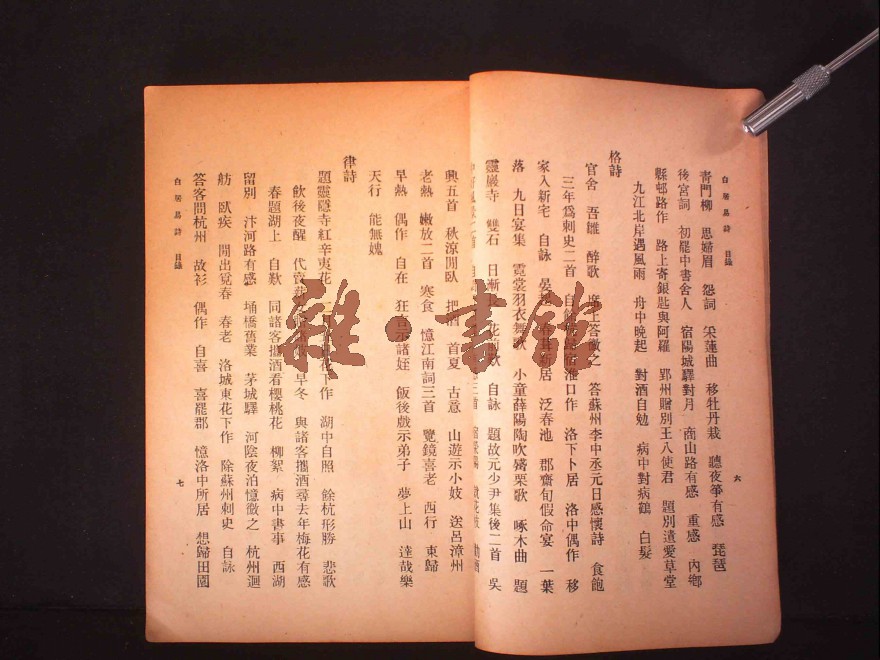 白居易詩 目錄
青門柳 思婦眉 怨詞 采蓮曲 移牡丹栽 聽夜箏有感 琵琶
後宮詞 初罷中書舍人 宿陽城驛對月 商山路有感 重感 內鄉
縣邨路作 路上寄銀匙與阿羅 郢州贈別王八使君 題別遺愛草堂
九江北岸遇風雨 舟中晚起 對酒自勉 病中對病鶴 白髮
六
格詩
官舍 吾雛 醉歌 席上答微之 答蘇州李中丞元日感懷詩 食飽
三年爲刺史二首 自餘杭 淮口作 洛下卜居 洛中偶作 移
家入新宅 自詠 新居 泛春池 郡齋旬假命宴 一葉
落 九日宴集 霓裳羽衣舞歌 小童薛陽陶吹觱栗歌 啄木曲 題
靈巖寺 雙石 日漸 花前歎 自詠 題故元少尹集後二首 吳
興五首 秋涼閒臥 把酒 首夏 古意 山遊示小妓 送呂漳州
老熱 嫩放二首 寒食 憶江南詞三首 覽鏡喜老 西行 東歸
早熱 偶作 自在 狂言示諸姪 飯後戲示弟子 夢上山 達哉樂
天行 能無媿
律詩
題靈隱寺紅辛夷花 花下作 湖中自照 餘杭形勝 悲歌
飲後夜醒 代賣薪 早冬 與諸客攜酒尋去年梅花有感
春題湖上 自歎 同諸客攜酒看櫻桃花 柳絮 病中書事 西湖
留別 汴河路有感 埇橋舊業 茅城驛 河陰夜泊憶微之 杭州迴
舫 臥疾 閒出覓春 春老 洛城東花下作 除蘇州刺史 自詠
答客問杭州 故衫 偶作 自喜 喜罷郡 憶洛中所居 想歸田園
白居易詩 目錄
七
雜·書館